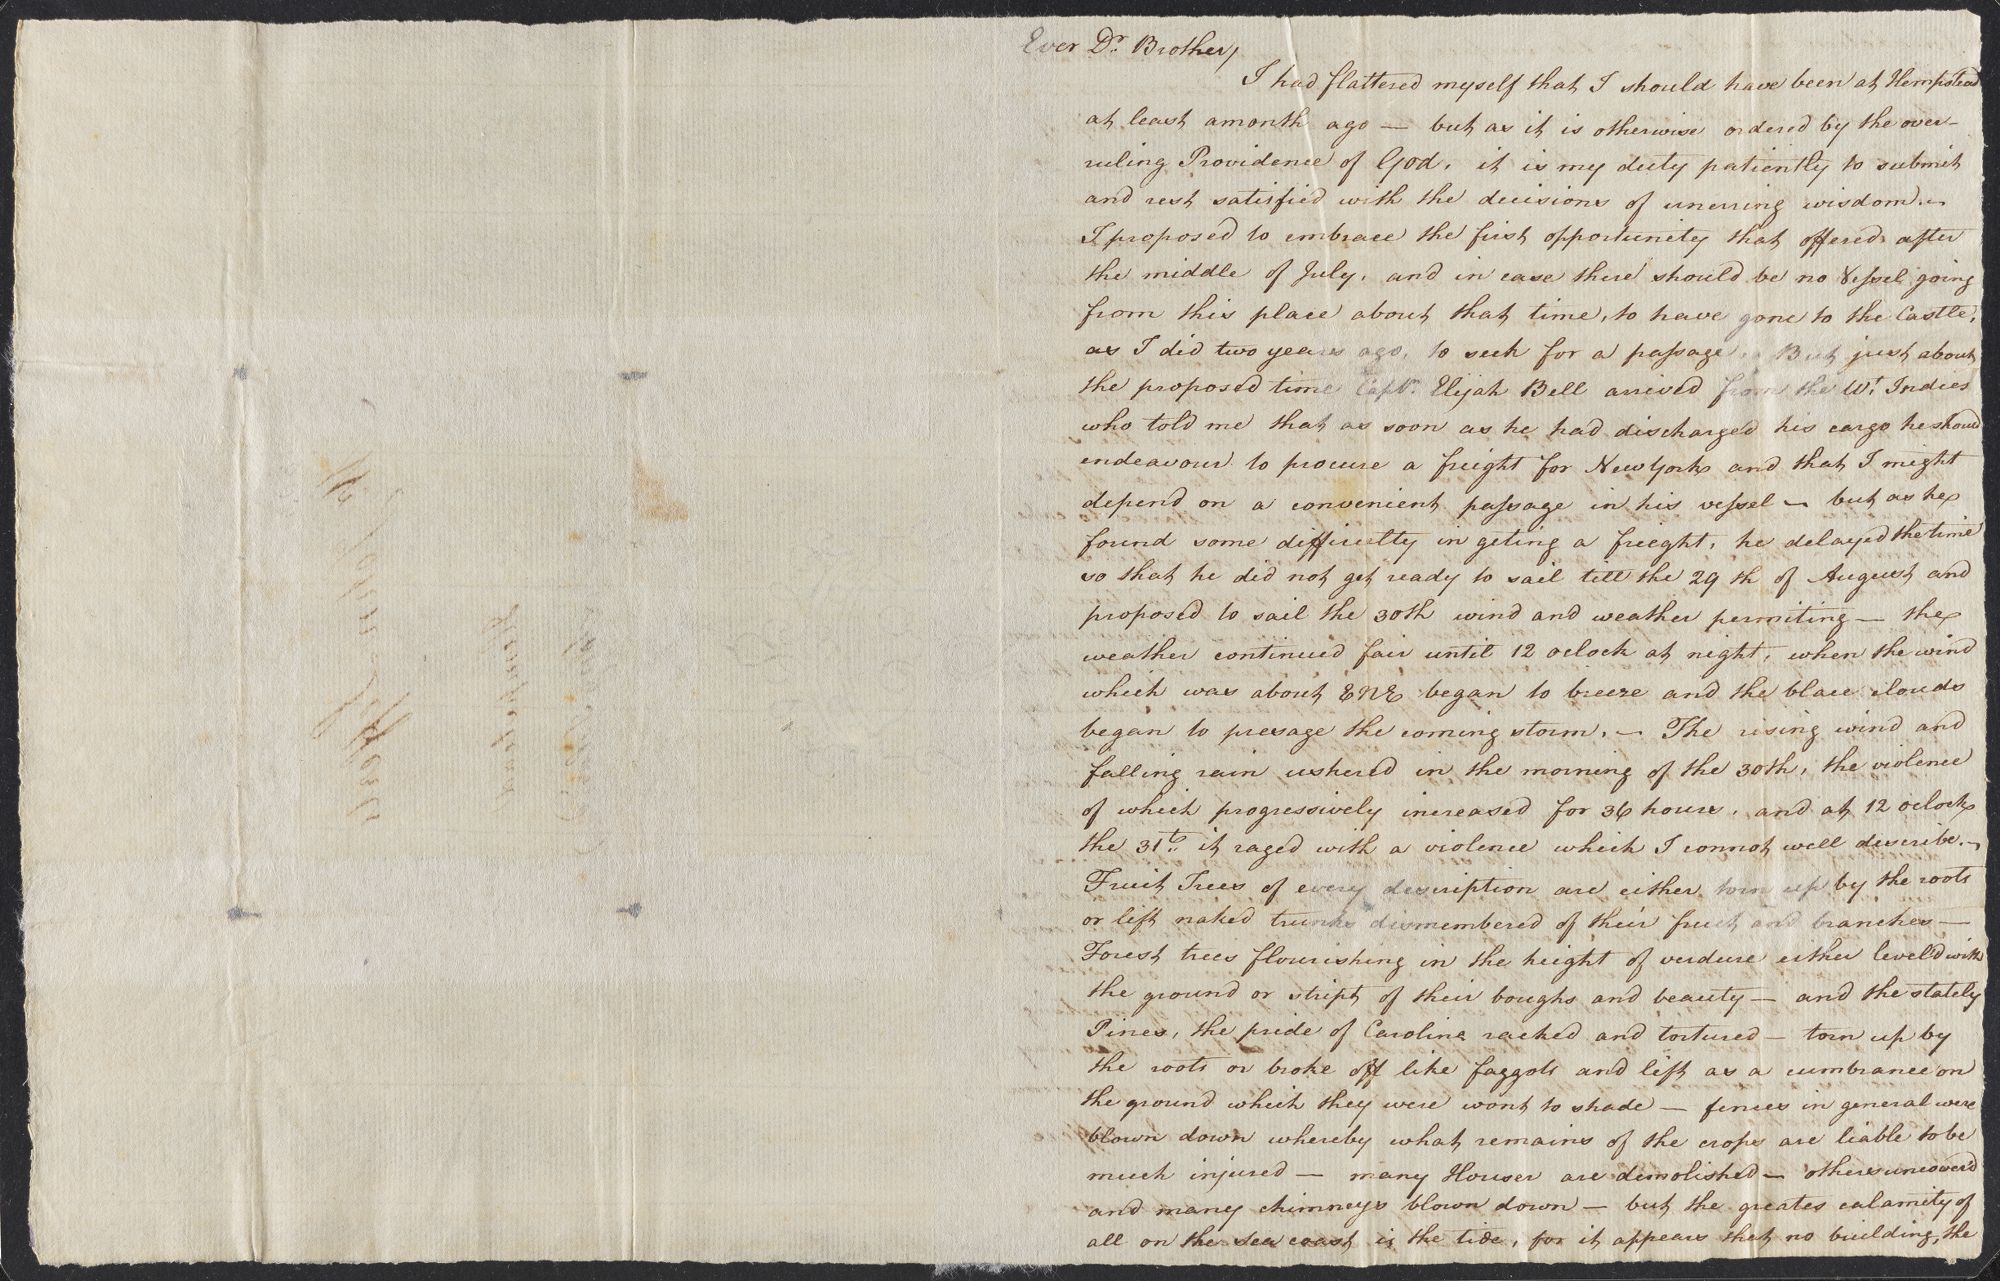 Ever Dr. Brother,
I had flattered myself that I should have been at Hempstead
at least a month ago — but as it is otherwise ordered by the over-
ruling Providence of God, it is my duty patiently to submit
and rest satisfied with the decisions of unerring wisdom.~
I proposed to embrace the first opportunity that offered after
the middle of July, and in case there should be no Vessel going
from this place about that time, to have gone to the Castle,
as I did two years ago, to seek for a passage. But just about
the proposed time Capt. Elijah Bell arrived from the Wt. Indies
who told me that as soon as he had discharged his cargo he should
endeavour to procure a freight for New York and that I might
depend on a convenient passage in his vessel — but as he
found some difficulty in geting a freight, he delayed the time
so that he did not get ready to sail till the 29th of August and
proposed to sail the 30th wind and weather permiting — the
weather continued fair until 12 oclock at night, when the wind
which was about ENE began to breeze and the blace clouds
began to presage the coming storm. — The rising wind and
falling rain ushered in the morning of the 30th, the violence
of which progressively increased for 36 hours, and at 12 oclock
the 31t. it raged with a violence which I connot well describe.~
Fruit Trees of every description are either torn up by the roots
or left naked trunks dismembered of their fruit and branches —
Forest trees flourishing in the height of verdure either level'd with
the ground or stript of their boughs and beauty — and the stately
Pines, the pride of Carolina racked and tortured — torn up by
the roots or broke off like faggots and left as a cumbrance on
the ground which they were wont to shade — fences in general were
blown down whereby what remains of the crops are liable to be
much injured — many Houses are demolished — others uncover'd
and many chimneys blown down — but the greates calamity of
all on the sea coast is the tide, for it appears that no building, the